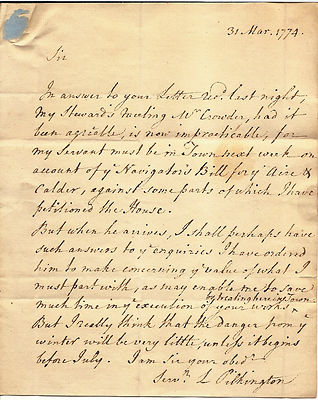 31 Mar. 1774.
Sir
In answer to your Letter recd. last night,
my Steward's meeting Mr Crowder, had it
been agreable, is now impracticable, for
my Servant must be in Town next week on
account of ye Navigation Bill for ye Aire &
Calder, against some parts of which I have
petitioned the House.
But when he arrives, I shall perhaps have
such answers to ye enquiries I have ordered
him to make concerning ye value of what I
must part with, as may enable me to save
by treating here in Town.
much time in ye execution of your works
But I really think that the danger from ye
winter will be very little, unless it begins
before July. I am Sir your obedt
Servnt. L Pilkington